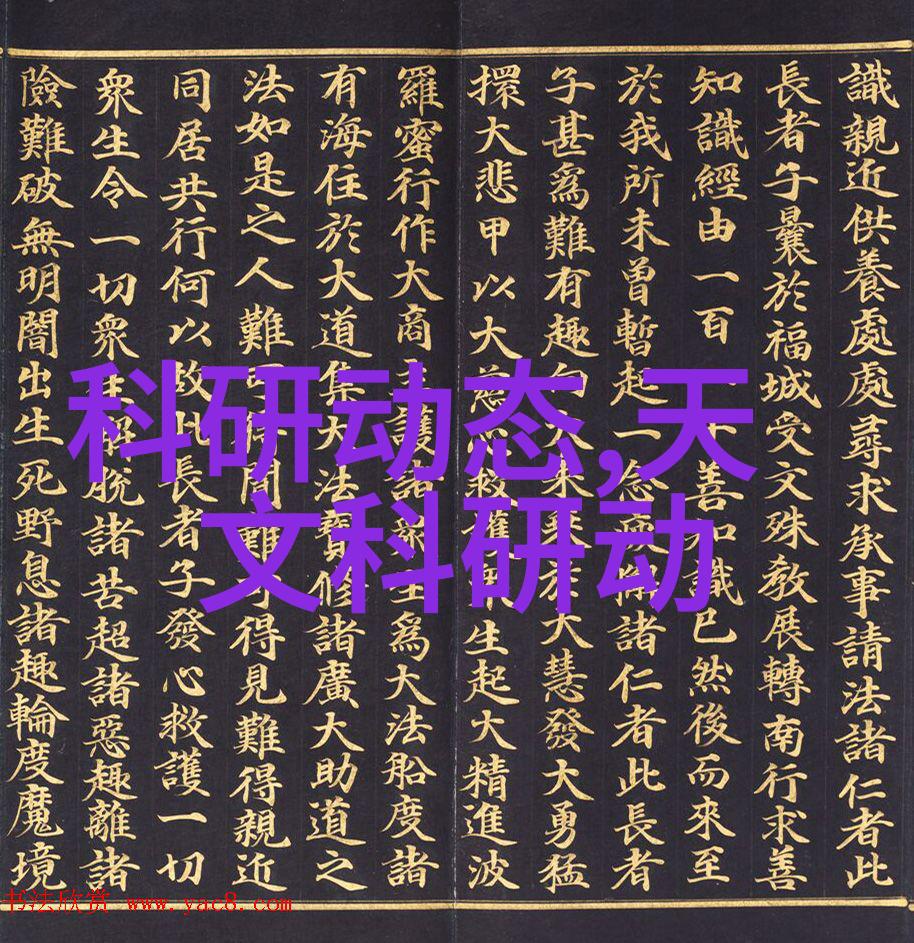 識親近供養處處尋求承事請法諸仁者此
長者子曩於福城受文殊教展轉南行求善
知識經由一百一十善知識已然後而來至
於我所未曾暫起一念疲懈諸仁者此長者
子甚爲難有趣向大乘乘於大慧發大勇猛
擐大悲甲以大慈心救護衆生起大精進波
羅蜜行作大商主護諸衆生爲大法船度諸
有海住於大道集大法寶修諸廣大助道之
法如是之人難可得聞難可得見難得親近
同居共行何以故此長者子發心救護一切
衆生令一切衆生解脫諸苦超諸惡趣離諸
險難破無明闇出生死野息諸趣輪度魔境
科研动态,天
文科研动
书法欣赏 www.yac8.com